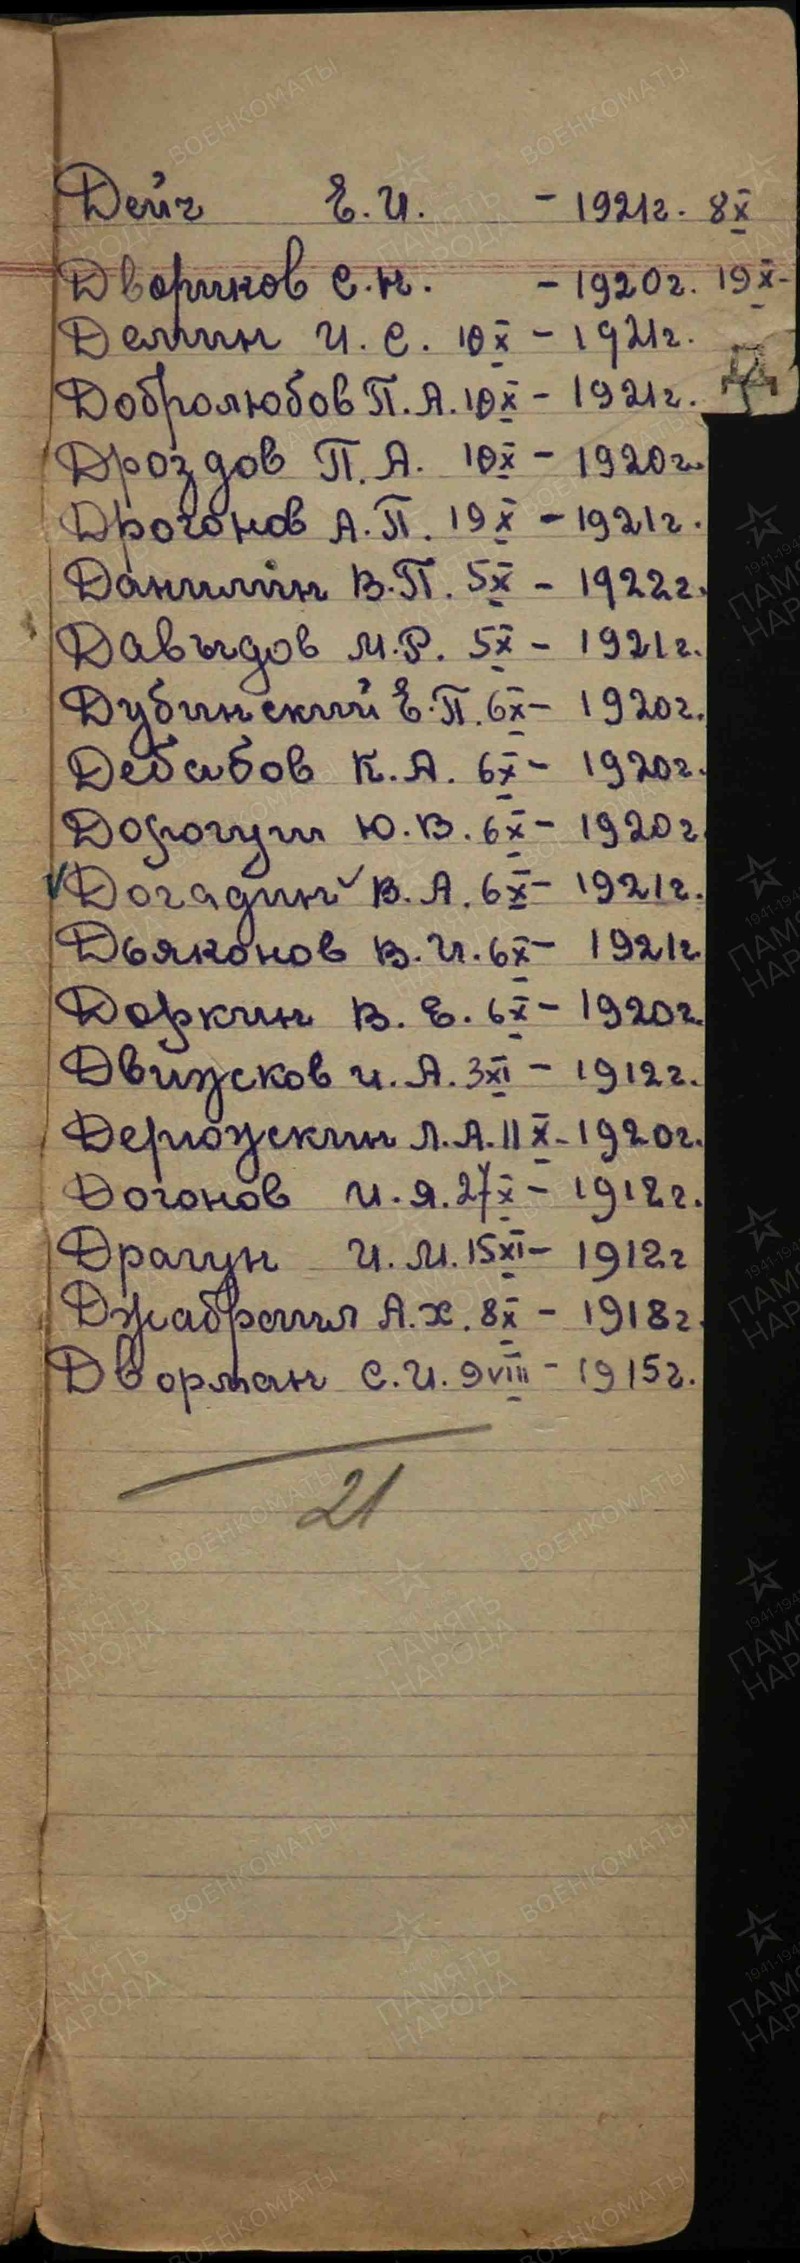 Дейч Е.И. - 1921г. 8X
Двориков С.Н. - 1920г. 19X-
Демин И.С. 10X - 1921г.
Д
Добролюбов П.А. 10X - 1921г.
Дроздов П.А. 10X - 1920г.
Дрогонов А.П. 19X - 1921г.
Данилин В.П. 5X - 1922г.
Давыдов М.Р. 5X - 1921г.
Дубинский Е.П. 6X - 1920г.
Дебабов К.А. 6X - 1920г.
Дорогуш Ю.В. 6X - 1920г.
√ Догадин ✓ В.А. 6X - 1921г.
Дьяконов В.И. 6X - 1921г.
Доркин В.Е. 6X - 1920г.
Движсков И.А. 3XI - 1912г.
Дерюжскин Л.А. 11X - 1920г.
Догонов И.Я. 27X - 1912г.
Драгун И.М. 15XI - 1912г
Джабраил А.Х. 8X - 1918г.
Дворман С.И. 9VIII - 1915г.
21